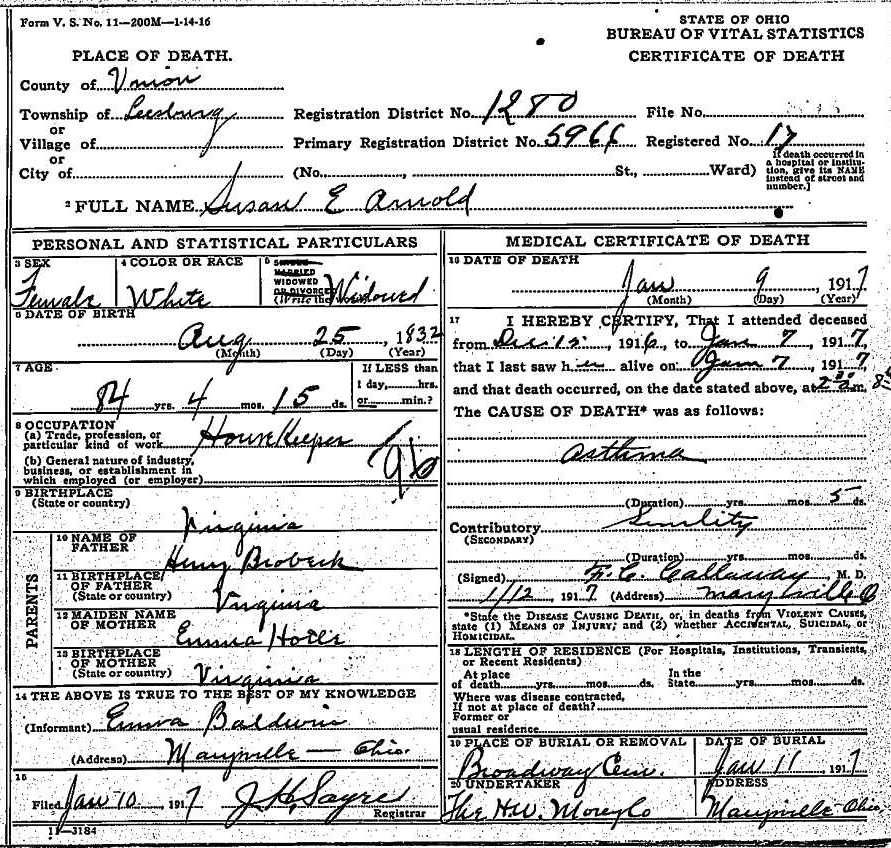 Form V. S. No. 11—200M—1-14-16
STATE OF OHIO
BUREAU OF VITAL STATISTICS
CERTIFICATE OF DEATH
PLACE OF DEATH.
County of Union
Township of Leesburg
or
Village of
or
City of
Registration District No. 1280
File No.
Primary Registration District No. 5966
Registered No. 17
(No. , St., Ward)
If death occurred in
a hospital or institu-
tion, give its NAME
instead of street and
number.]
2 FULL NAME Susan E Arnold
PERSONAL AND STATISTICAL PARTICULARS
3 SEX
Female
4 COLOR OR RACE
White
5
MARRIED
WIDOWED
OR DIVORCED
(Write the Widowed
6 DATE OF BIRTH
Aug 25, 1832
(Month) (Day) (Year)
7 AGE
84 yrs. 4 mos. 15 ds.
If LESS than
1 day, hrs.
or min.?
8 OCCUPATION
(a) Trade, profession, or
particular kind of work House Keeper
(b) General nature of industry,
business, or establishment in
which employed (or employer)
9 BIRTHPLACE
(State or country)
Virginia
PARENTS
10 NAME OF
FATHER
Henry Brobeck
11 BIRTHPLACE
OF FATHER
(State or country)
Virginia
12 MAIDEN NAME
OF MOTHER
Emma
13 BIRTHPLACE
OF MOTHER
(State or country)
Virginia
14 THE ABOVE IS TRUE TO THE BEST OF MY KNOWLEDGE
(Informant) Emma Baldwin
(Address) Marysville — Ohio.
15
Filed Jan 10 1917 J. H. Sayre
Registrar
11—3184
MEDICAL CERTIFICATE OF DEATH
16 DATE OF DEATH
Jan 9, 1917
(Month) (Day) (Year)
17 I HEREBY CERTIFY, That I attended deceased
from Dec 12, 1916, to Jan 7, 1917,
that I last saw her alive on Jan 7, 1917,
and that death occurred, on the date stated above, at m.
The CAUSE OF DEATH* was as follows:
Asthma
(Duration) yrs. mos. 5 ds.
Contributory Senility
(SECONDARY)
(Duration) yrs. mos. ds.
(Signed) F. C. Callaway M. D.
1/12, 1917 (Address) Marysville O
*State the DISEASE CAUSING DEATH, or, in deaths from VIOLENT CAUSES,
state (1) MEANS OF INJURY; and (2) whether ACCIDENTAL, SUICIDAL, or
HOMICIDAL.
18 LENGTH OF RESIDENCE (For Hospitals, Institutions, Transients,
or Recent Residents)
At place
of death yrs. mos. ds.
In the
State yrs. mos. ds.
Where was disease contracted,
If not at place of death?
Former or
usual residence
19 PLACE OF BURIAL OR REMOVAL
Broadway Cem.
DATE OF BURIAL
Jan 11 1917
20 UNDERTAKER
The H.W. Morey Co
ADDRESS
Marysville Ohio